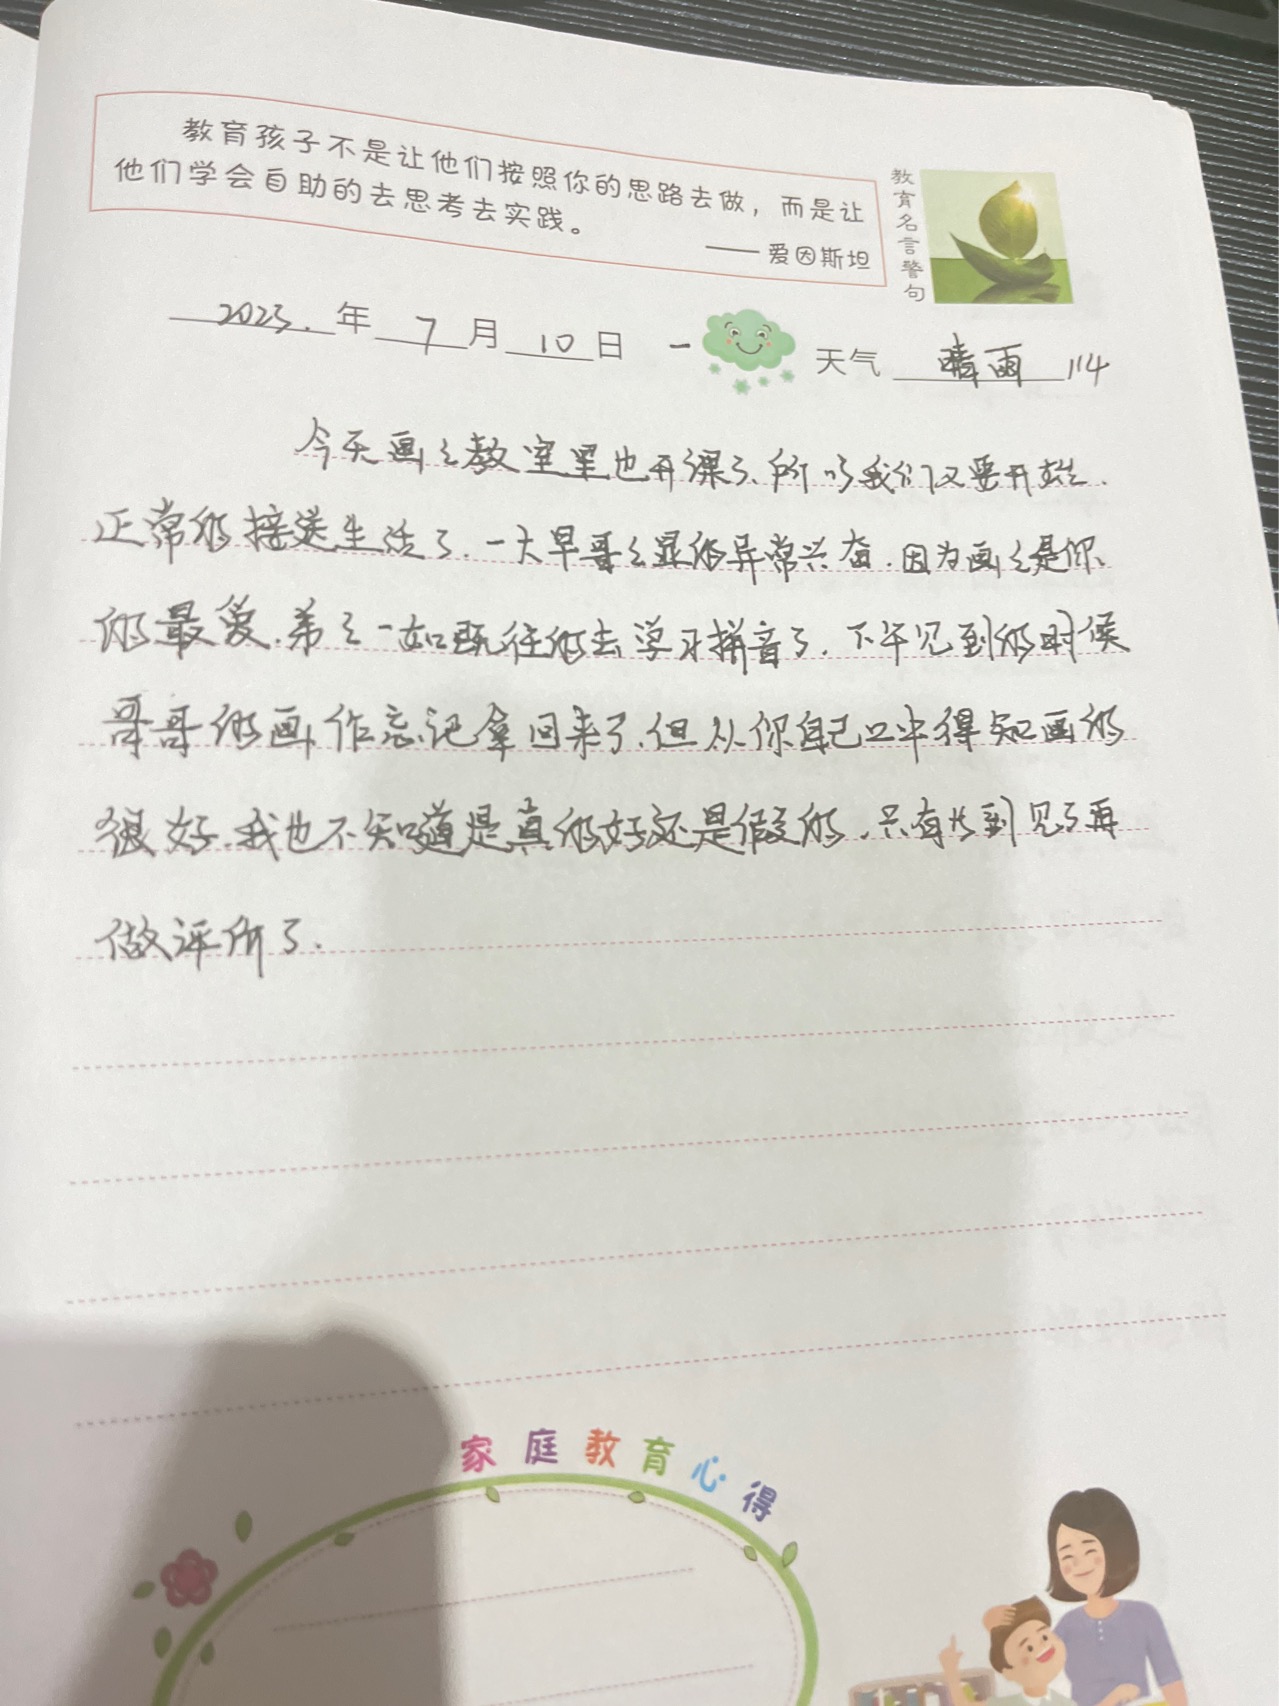 教育孩子不是让他们按照你的思路去做，而是让
他们学会自助的去思考去实践。
—— 爱因斯坦
教育名言警句
2023. 年 7 月 10 日 一 天气 晴雨 114
今天画之教室里也开课了、所以我们又要开始、
正常的接送生活了、一大早哥之显的异常兴奋、因为画之是你
的最爱、弟之一如既往的去学习拼音了、下午见到的时候
哥哥的画作忘记拿回来了、但从你自己口中得知画的
很好、我也不知道是真的好还是假的、只有等到见了再
做评价了.
家庭教育心得